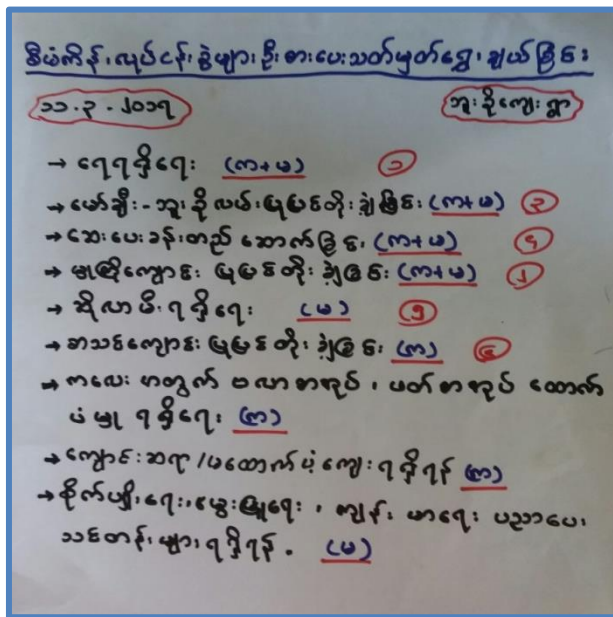 စီမံကိန်း လုပ်ငန်းခွဲများ ဦးစားပေးသတ်မှတ်ရွေးချယ်ခြင်း
၁၁.၃.၂၀၁၇ ဘူးခိုကျေးရွာ
→ ရေရရှိရေး (က+မ) ၁
→ မော်ချီး-ဘူးခိုလမ်းပြုပြင်တိုးချဲ့ခြင်း (က+မ) ၃
→ ဆေးပေးခန်းတည်ဆောက်ခြင်း (က+မ) ၄
→ မူကြိုကျောင်း ပြုပြင်တိုးချဲ့ခြင်း (က+မ) ၂
→ ဆိုလာမီးရရှိရေး (မ) ၅
→ စာသင်ကျောင်း ပြုပြင်တိုးချဲ့ခြင်း (က) ၆
→ ကလေးဟတွက် ဗလာစာအုပ်၊ ဖတ်စာအုပ် ထောက်
ပံ့မှု ရရှိရေး (က)
→ ကျောင်းဆရာ/မထောက်ပံ့ကျေးရရှိရန် (က)
→ စိုက်ပျိုးရေး၊ မွေးမြူရေး၊ ကျန်းမာရေး ပညာပေး
သင်တန်းများရရှိရန်. (မ)